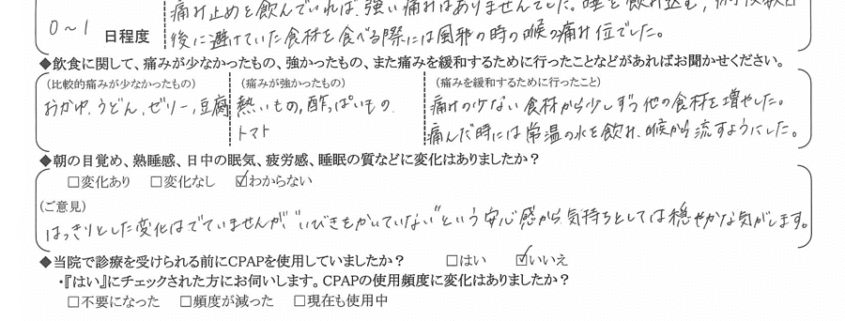 痛み止めを飲んでいれば、強い痛みはありませんでした。唾を飲み込む,
0～1 日程度 後に避けていた食材を食べる際には風邪の時の喉の痛み位でした。
◆飲食に関して、痛みが少なかったもの、強かったもの、また痛みを緩和するために行ったことなどがあればお聞かせください。
(比較的痛みが少なかったもの) (痛みが強かったもの) (痛みを緩和するために行ったこと)
おかゆ、うどん、ゼリー、豆腐 熱いもの。酢っぱいもの 痛みの少ない食材から少しずつ他の食材を増やした。
トマト 痛んだ時には常温の水を飲み、喉から流すようにした。
◆朝の目覚め、熟睡感、日中の眠気、疲労感、睡眠の質などに変化はありましたか？
□変化あり □変化なし ☑わからない
(ご意見)
はっきりとした変化はでていませんが、"いびきをかいていない"という安心感から気持ちとしては穏やかな気がします。
◆当院で診療を受けられる前にCPAPを使用していましたか？ □はい ☑いいえ
・『はい』にチェックされた方にお伺いします。CPAPの使用頻度に変化はありましたか？
□不要になった □頻度が減った □現在も使用中